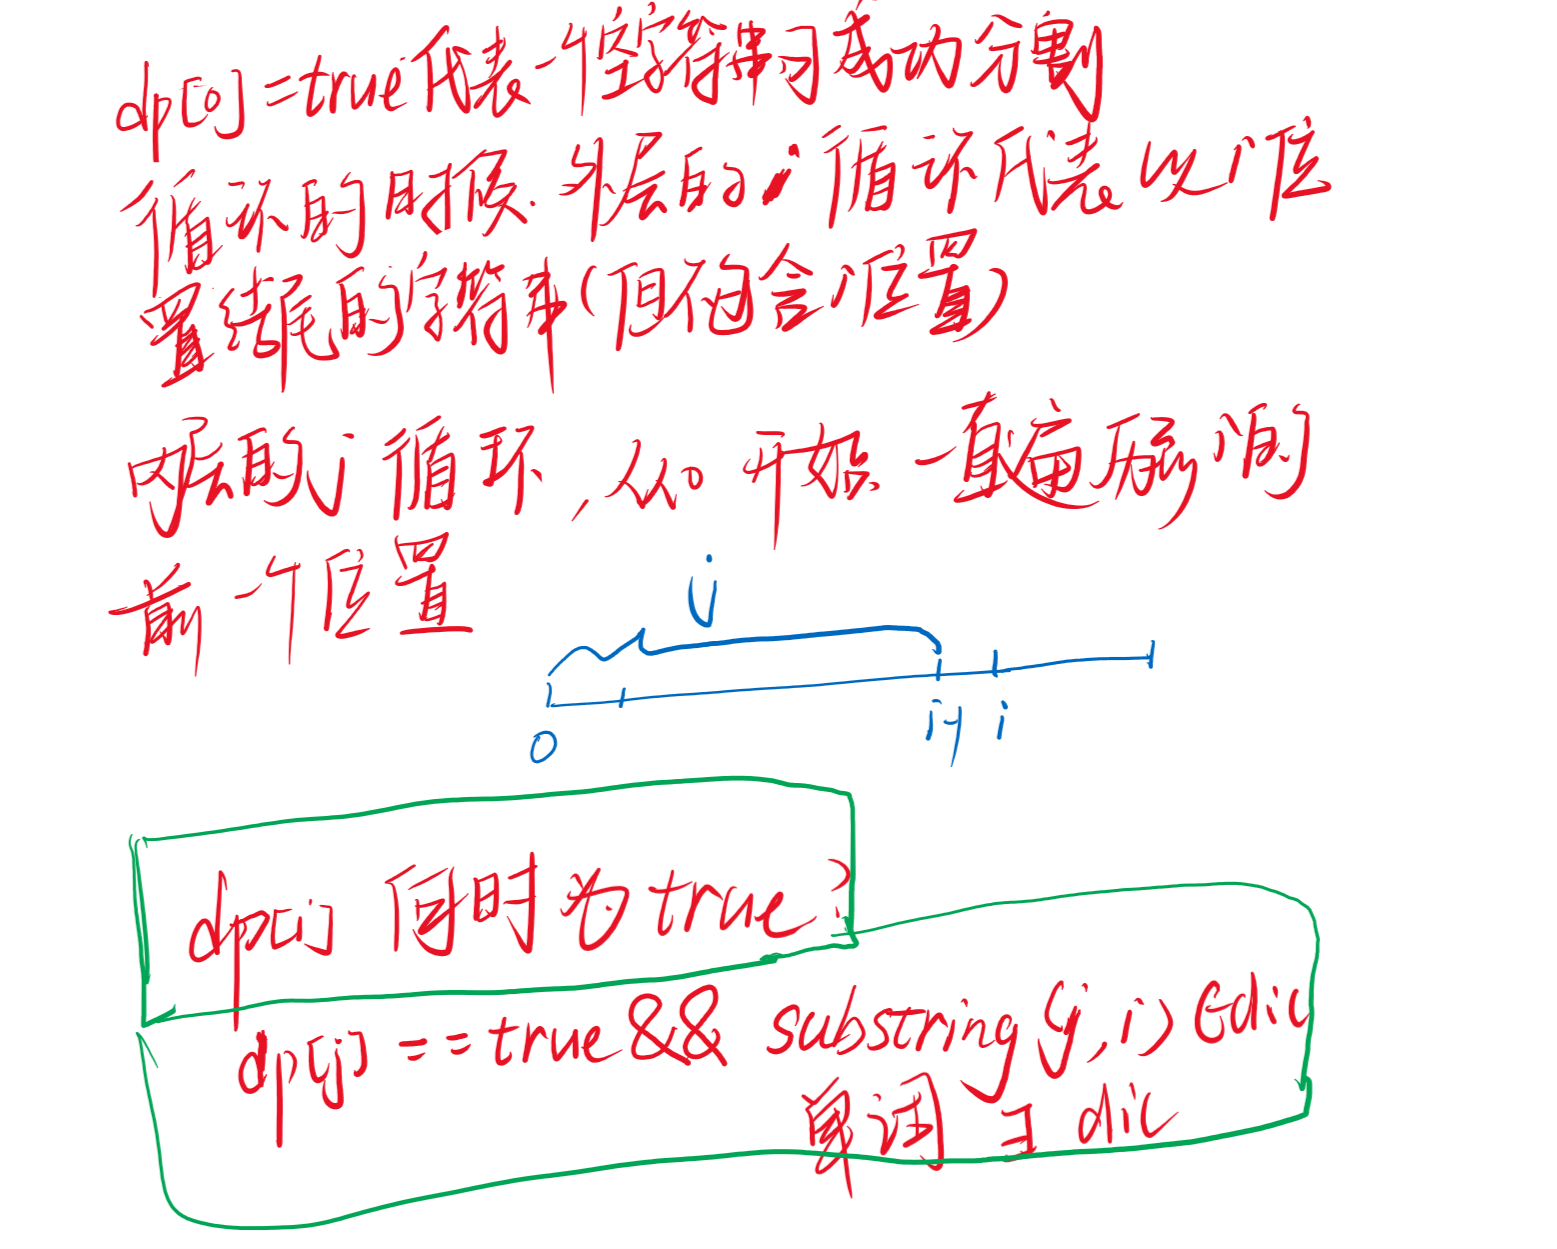 dp[0]=true代表一个空字符串可成功分割
循环的时候.外层的i循环代表以i位
置结尾的字符串(但不包含i位置)
内层的j循环,从0开始一直遍历到i的
前一个位置
j
0 i-1 i
dp[i] 何时为true?
dp[j]==true&& substring(j,i)∈dic
单词∃dic